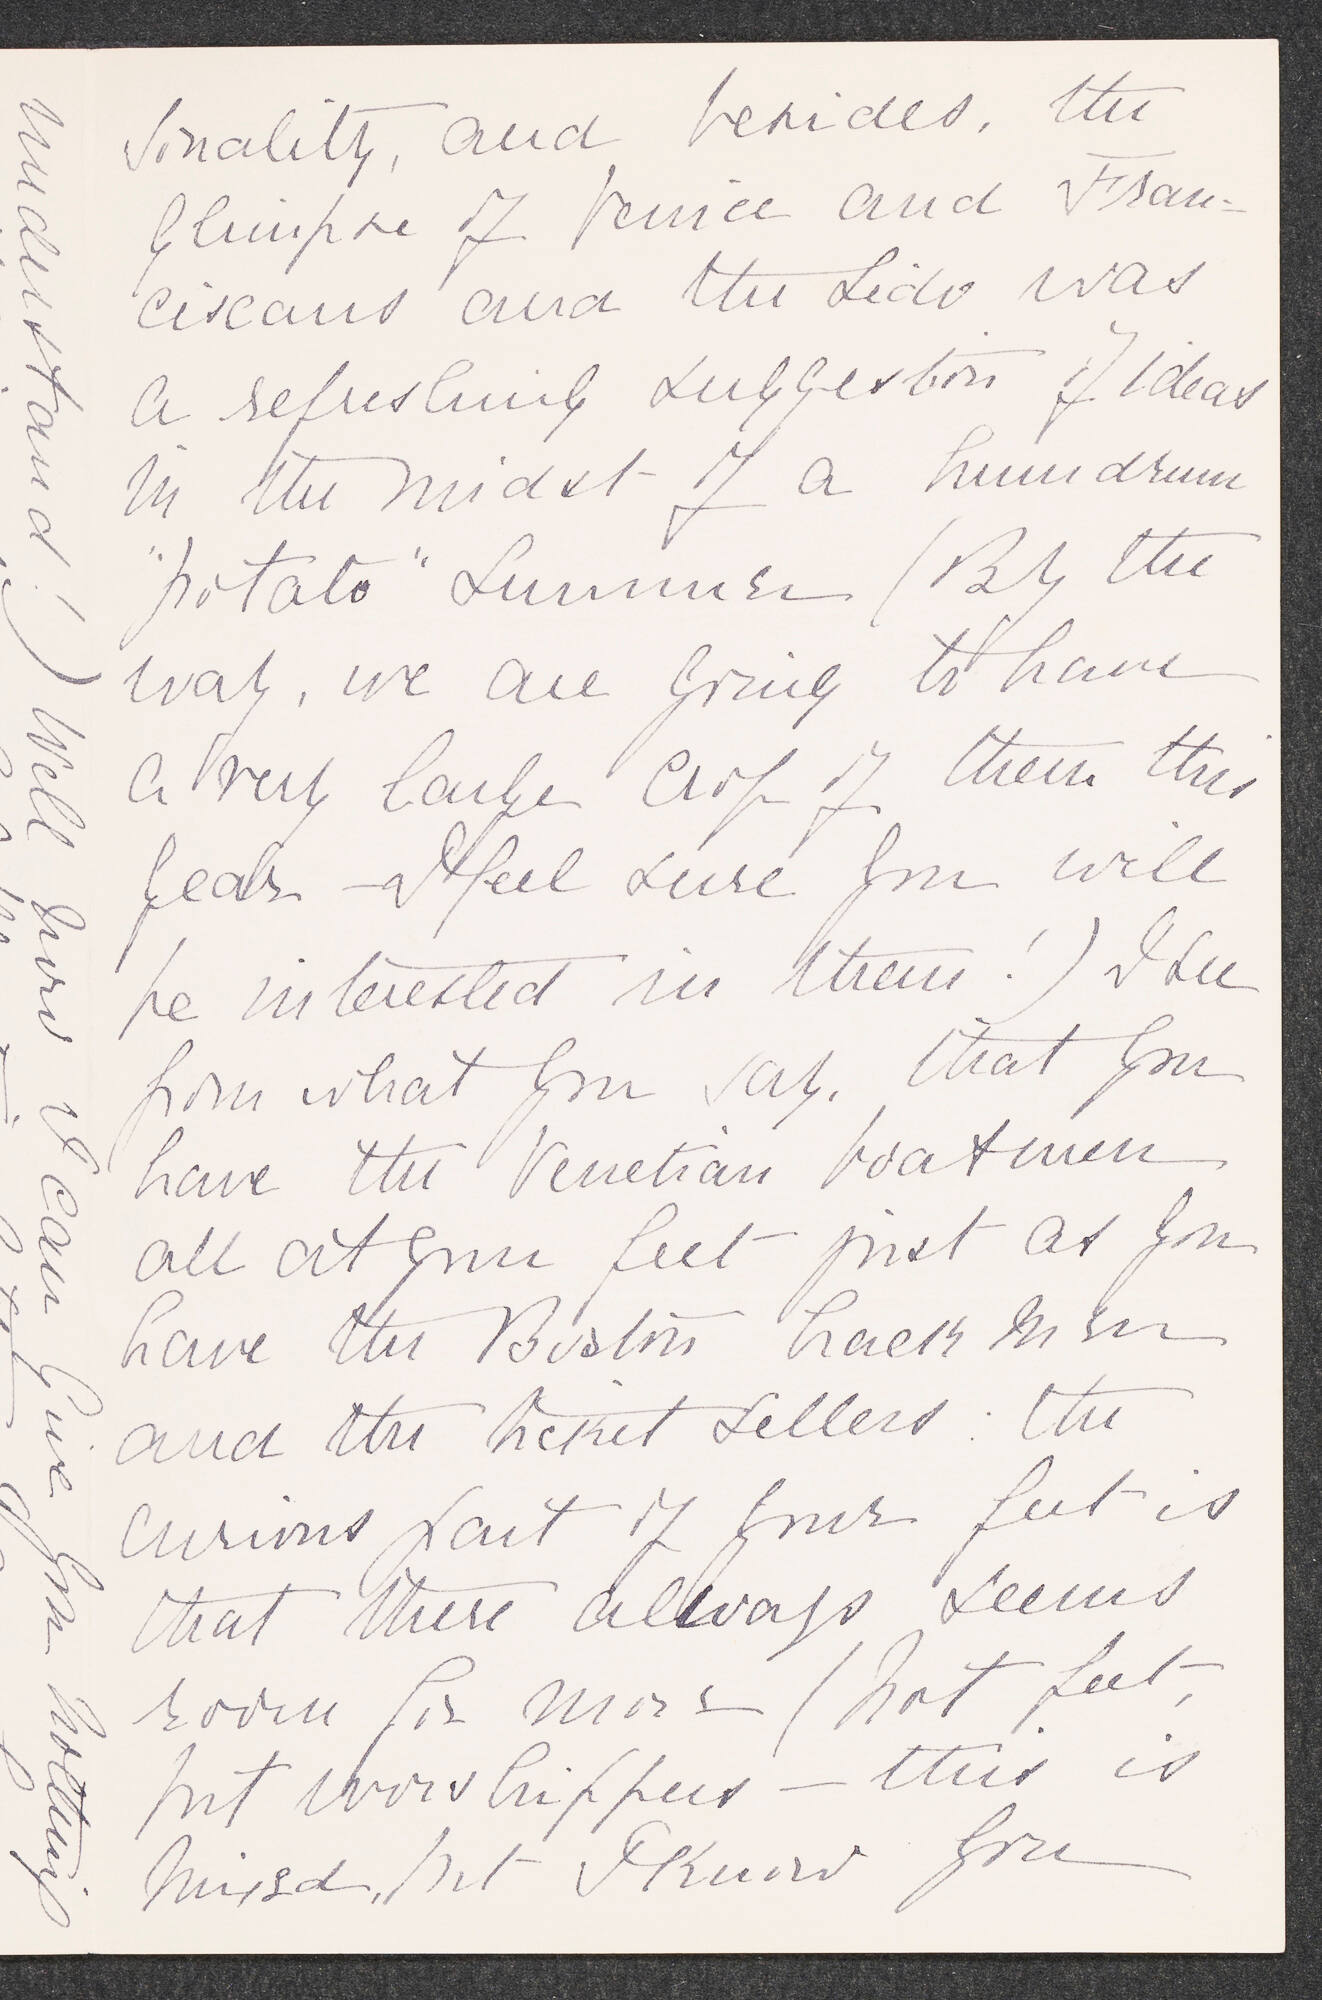 sonality, and besides, the
glimpse of Venice and Fran-
ciscans and the Lido was
a refreshing suggestion of ideas
in the midst of a humdrum
"potato" Summer (By the
way, we are going to have
a very large crop of them this
year - I feel sure you will
be interested in them!) I see
from what you say, that you
have the Venetian boatmen
all at your feet just as you
have the Boston hack men
and the ticket sellers: the
curious part of your feet is
that there always seems
room for more (not feet,
but worshippers - this is
mixed, but I know you
understand!) Well now I can give you nothing